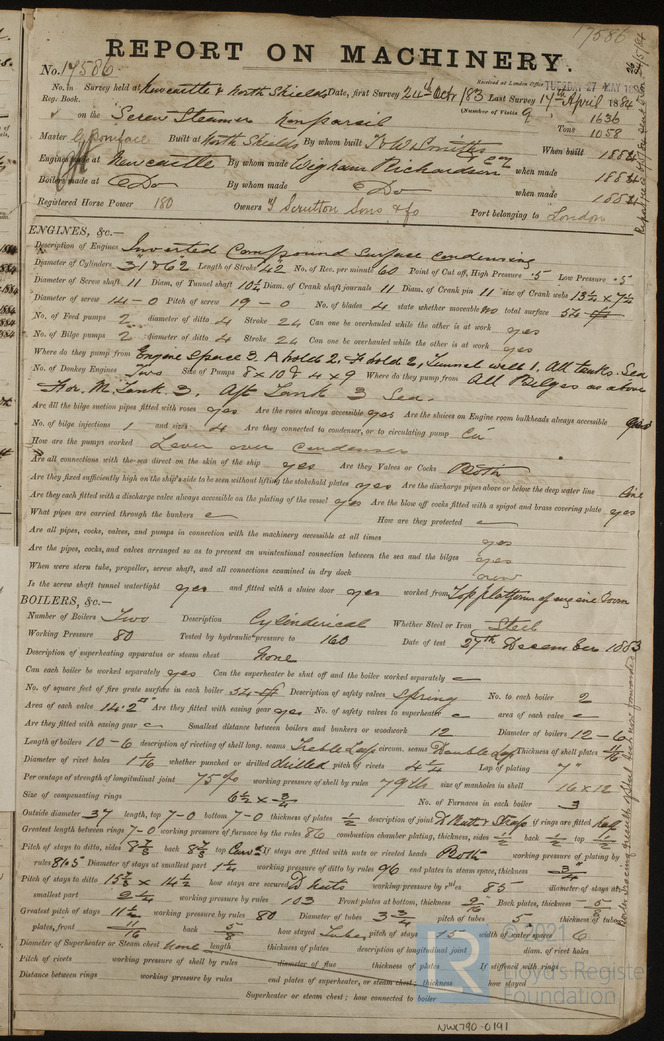 17586
REPORT ON MACHINERY.
No. 17586
Received at London Office TUESDAY 27 MAY 188
No. in Survey held at Newcastle & North Shields Date, first Survey 24th Octr /83 Last Survey 17th April 1884
Reg. Book. (Number of Visits 9)
on the Screw Steamer Nonpareil Tons 1636 1058
Master G. Bomface Built at North Shields By whom built T & W Smith When built 1884
Engines made at Newcastle By whom made Wigham Richardson & Co when made 1884
Boilers made at Do By whom made Do when made 1884
Registered Horse Power 180 Owners T. Scrutton Sons & Co Port belonging to London
ENGINES, &c.—
Description of Engines Inverted Compound Surface Condensing
Diameter of Cylinders 31 & 62 Length of Stroke 42 No. of Rev. per minute 60 Point of Cut off, High Pressure .5 Low Pressure .5
Diameter of Screw shaft 11 Diam. of Tunnel shaft 10½ Diam. of Crank shaft journals 11 Diam. of Crank pin 11 size of Crank webs 13½ x 7½
Diameter of screw 14-0 Pitch of screw 19-0 No. of blades 4 state whether moveable no total surface 54
No. of Feed pumps 2 diameter of ditto 4 Stroke 24 Can one be overhauled while the other is at work yes
No. of Bilge pumps 2 diameter of ditto 4 Stroke 24 Can one be overhauled while the other is at work yes
Where do they pump from Engine Space 3, A hold 2, F hold 2, Tunnel well 1, All tanks, Sea
No. of Donkey Engines Two Size of Pumps 8 x 10 & 4 x 9 Where do they pump from All Bilges as above
For. M. Tank 3. Aft Tank 3 Sea.
Are all the bilge suction pipes fitted with roses yes Are the roses always accessible yes Are the sluices on Engine room bulkheads always accessible
No. of bilge injections 1 and sizes 4 Are they connected to condenser, or to circulating pump Cir
How are the pumps worked Lever over Condenser
Are all connections with the sea direct on the skin of the ship yes Are they Valves or Cocks Both
Are they fixed sufficiently high on the ship's side to be seen without lifting the stokehold plates yes Are the discharge pipes above or below the deep water line
Are they each fitted with a discharge valve always accessible on the plating of the vessel yes Are the blow off cocks fitted with a spigot and brass covering plate yes
What pipes are carried through the bunkers How are they protected
Are all pipes, cocks, valves, and pumps in connection with the machinery accessible at all times yes
Are the pipes, cocks, and valves arranged so as to prevent an unintentional connection between the sea and the bilges yes
When were stern tube, propeller, screw shaft, and all connections examined in dry dock new
Is the screw shaft tunnel watertight yes and fitted with a sluice door yes worked from Top platform of engine room
BOILERS, &c.—
Number of Boilers Two Description Cylindrical Whether Steel or Iron Steel
Working Pressure 80 Tested by hydraulic pressure to 160 Date of test 27th December 1883
Description of superheating apparatus or steam chest None
Can each boiler be worked separately yes Can the superheater be shut off and the boiler worked separately
No. of square feet of fire grate surface in each boiler 54 Description of safety valves Spring No. to each boiler 2
Area of each valve 14.2 Are they fitted with easing gear yes No. of safety valves to superheater area of each valve
Are they fitted with easing gear Smallest distance between boilers and bunkers or woodwork 12 Diameter of boilers 12-6
Length of boilers 10-6 description of riveting of shell long. seams Treble Lap circum. seams Double Lap Thickness of shell plates 11/16
Diameter of rivet holes 1 1/16 whether punched or drilled drilled pitch of rivets 4 1/4 Lap of plating 7"
Per centage of strength of longitudinal joint 75% working pressure of shell by rules 79 lb size of manholes in shell 16 x 12
Size of compensating rings 6½ x ¾ No. of Furnaces in each boiler 3
Outside diameter 37 length, top 7-0 bottom 7-0 thickness of plates ½ description of joint D Butt & Strap if rings are fitted half
Greatest length between rings 7-0 working pressure of furnace by the rules 86 combustion chamber plating, thickness, sides ½ back ½ top ½
Pitch of stays to ditto, sides 8 7/8 back 8 7/8 top If stays are fitted with nuts or riveted heads Both working pressure of plating by
rules 81.5 Diameter of stays at smallest part 1¼ working pressure of ditto by rules 96 end plates in steam space, thickness ¾"
Pitch of stays to ditto 15 7/8 x 14½ how stays are secured D Nuts working pressure by rules 85 diameter of stays at
smallest part 2¼ working pressure by rules 103 Front plates at bottom, thickness 9/16 Back plates, thickness 5/8
Greatest pitch of stays 11½ working pressure by rules 80 Diameter of tubes 3¾ pitch of tubes 5 thickness of tube
plates, front 11/16 back 5/8 how stayed Tubes pitch of stays 15 width of water spaces 6
Diameter of Superheater or Steam chest None length thickness of plates description of longitudinal joint diam. of rivet holes
Pitch of rivets working pressure of shell by rules diameter of flue thickness of plates If stiffened with rings
Distance between rings working pressure by rules end plates of superheater, or steam chest; thickness how stayed
Superheater or steam chest; how connected to boiler
© 2021
LR
Lloyd's Register
Foundation
NWC790-0191